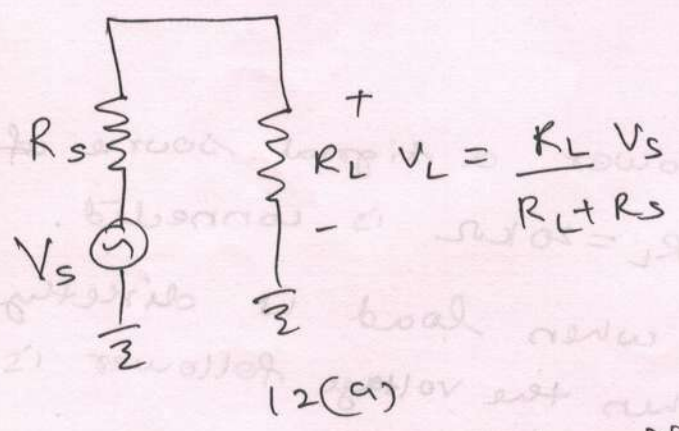 Rs
Vs
+
RL VL = RL Vs
-
RL + Rs
12(a)